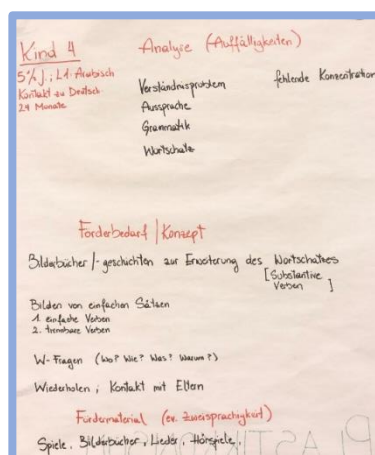 Kind 4
5½ J.; L1: Arabisch
Kontakt zu Deutsch
24 Monate
Analyse (Auffälligkeiten)
Verständnisproblem
Aussprache
Grammatik
Wortschatz
fehlende Konzentration
Förderbedarf / Konzept
Bilderbücher /- geschichten zur Erweiterung des Wortschatzes
[Substantive
Verben ]
Bilden von einfachen Sätzen
1. einfache Verben
2. trennbare Verben
W-Fragen (Wo? Wie? Was? Warum?)
Wiederholen ; Kontakt mit Eltern
Fördermaterial (ev. Zweisprachigkeit)
Spiele, Bilderbücher, Lieder, Hörspiele,